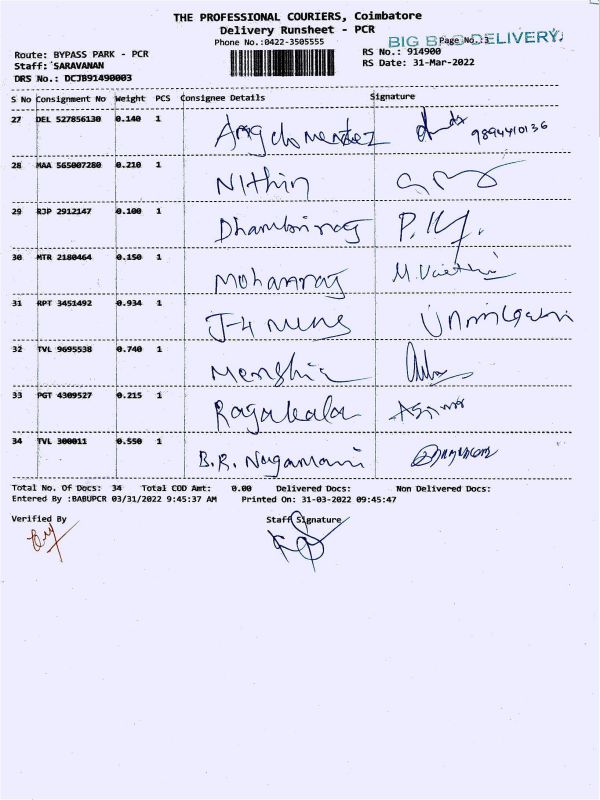 THE PROFESSIONAL COURIERS, Coimbatore
Delivery Runsheet - PCR
Phone No.:0422-3505555
BIG BAG DELIVERY.
Page No.:3
Route: BYPASS PARK - PCR
RS No.: 914900
Staff: SARAVANAN
RS Date: 31-Mar-2022
DRS No.: DCJB91490003
S No Consignment No Weight PCS Consignee Details Signature
27 DEL 527856130 0.140 1 Angelo mendez 9894410136
28 MAA 565007280 0.210 1 Nithin
29 RJP 2912147 0.100 1
30 MTR 2180464 0.150 1 Mohanraj
31 RPT 3451492 0.934 1
32 TVL 9695538 0.740 1
33 PGT 4309527 0.215 1 Ragakala
34 TVL 300011 0.550 1 B.R. Nagamani
Total No. Of Docs: 34 Total COD Amt: 0.00 Delivered Docs: Non Delivered Docs:
Entered By :BABUPCR 03/31/2022 9:45:37 AM Printed On: 31-03-2022 09:45:47
Verified By Staff Signature